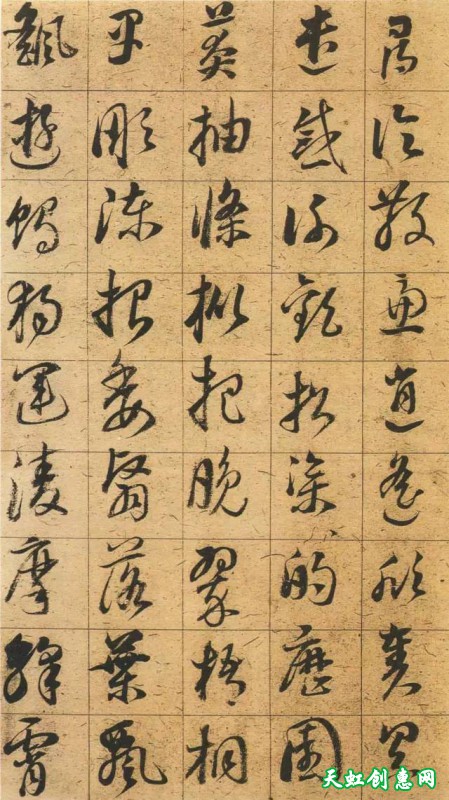 尋論散慮逍遙欣奏累
遣慼謝歡招渠的歷園
莽抽條枇杷晚翠梧桐
早彫陳根委翳落葉飄
颻遊鵾獨運凌摩絳霄
天虹创惠网